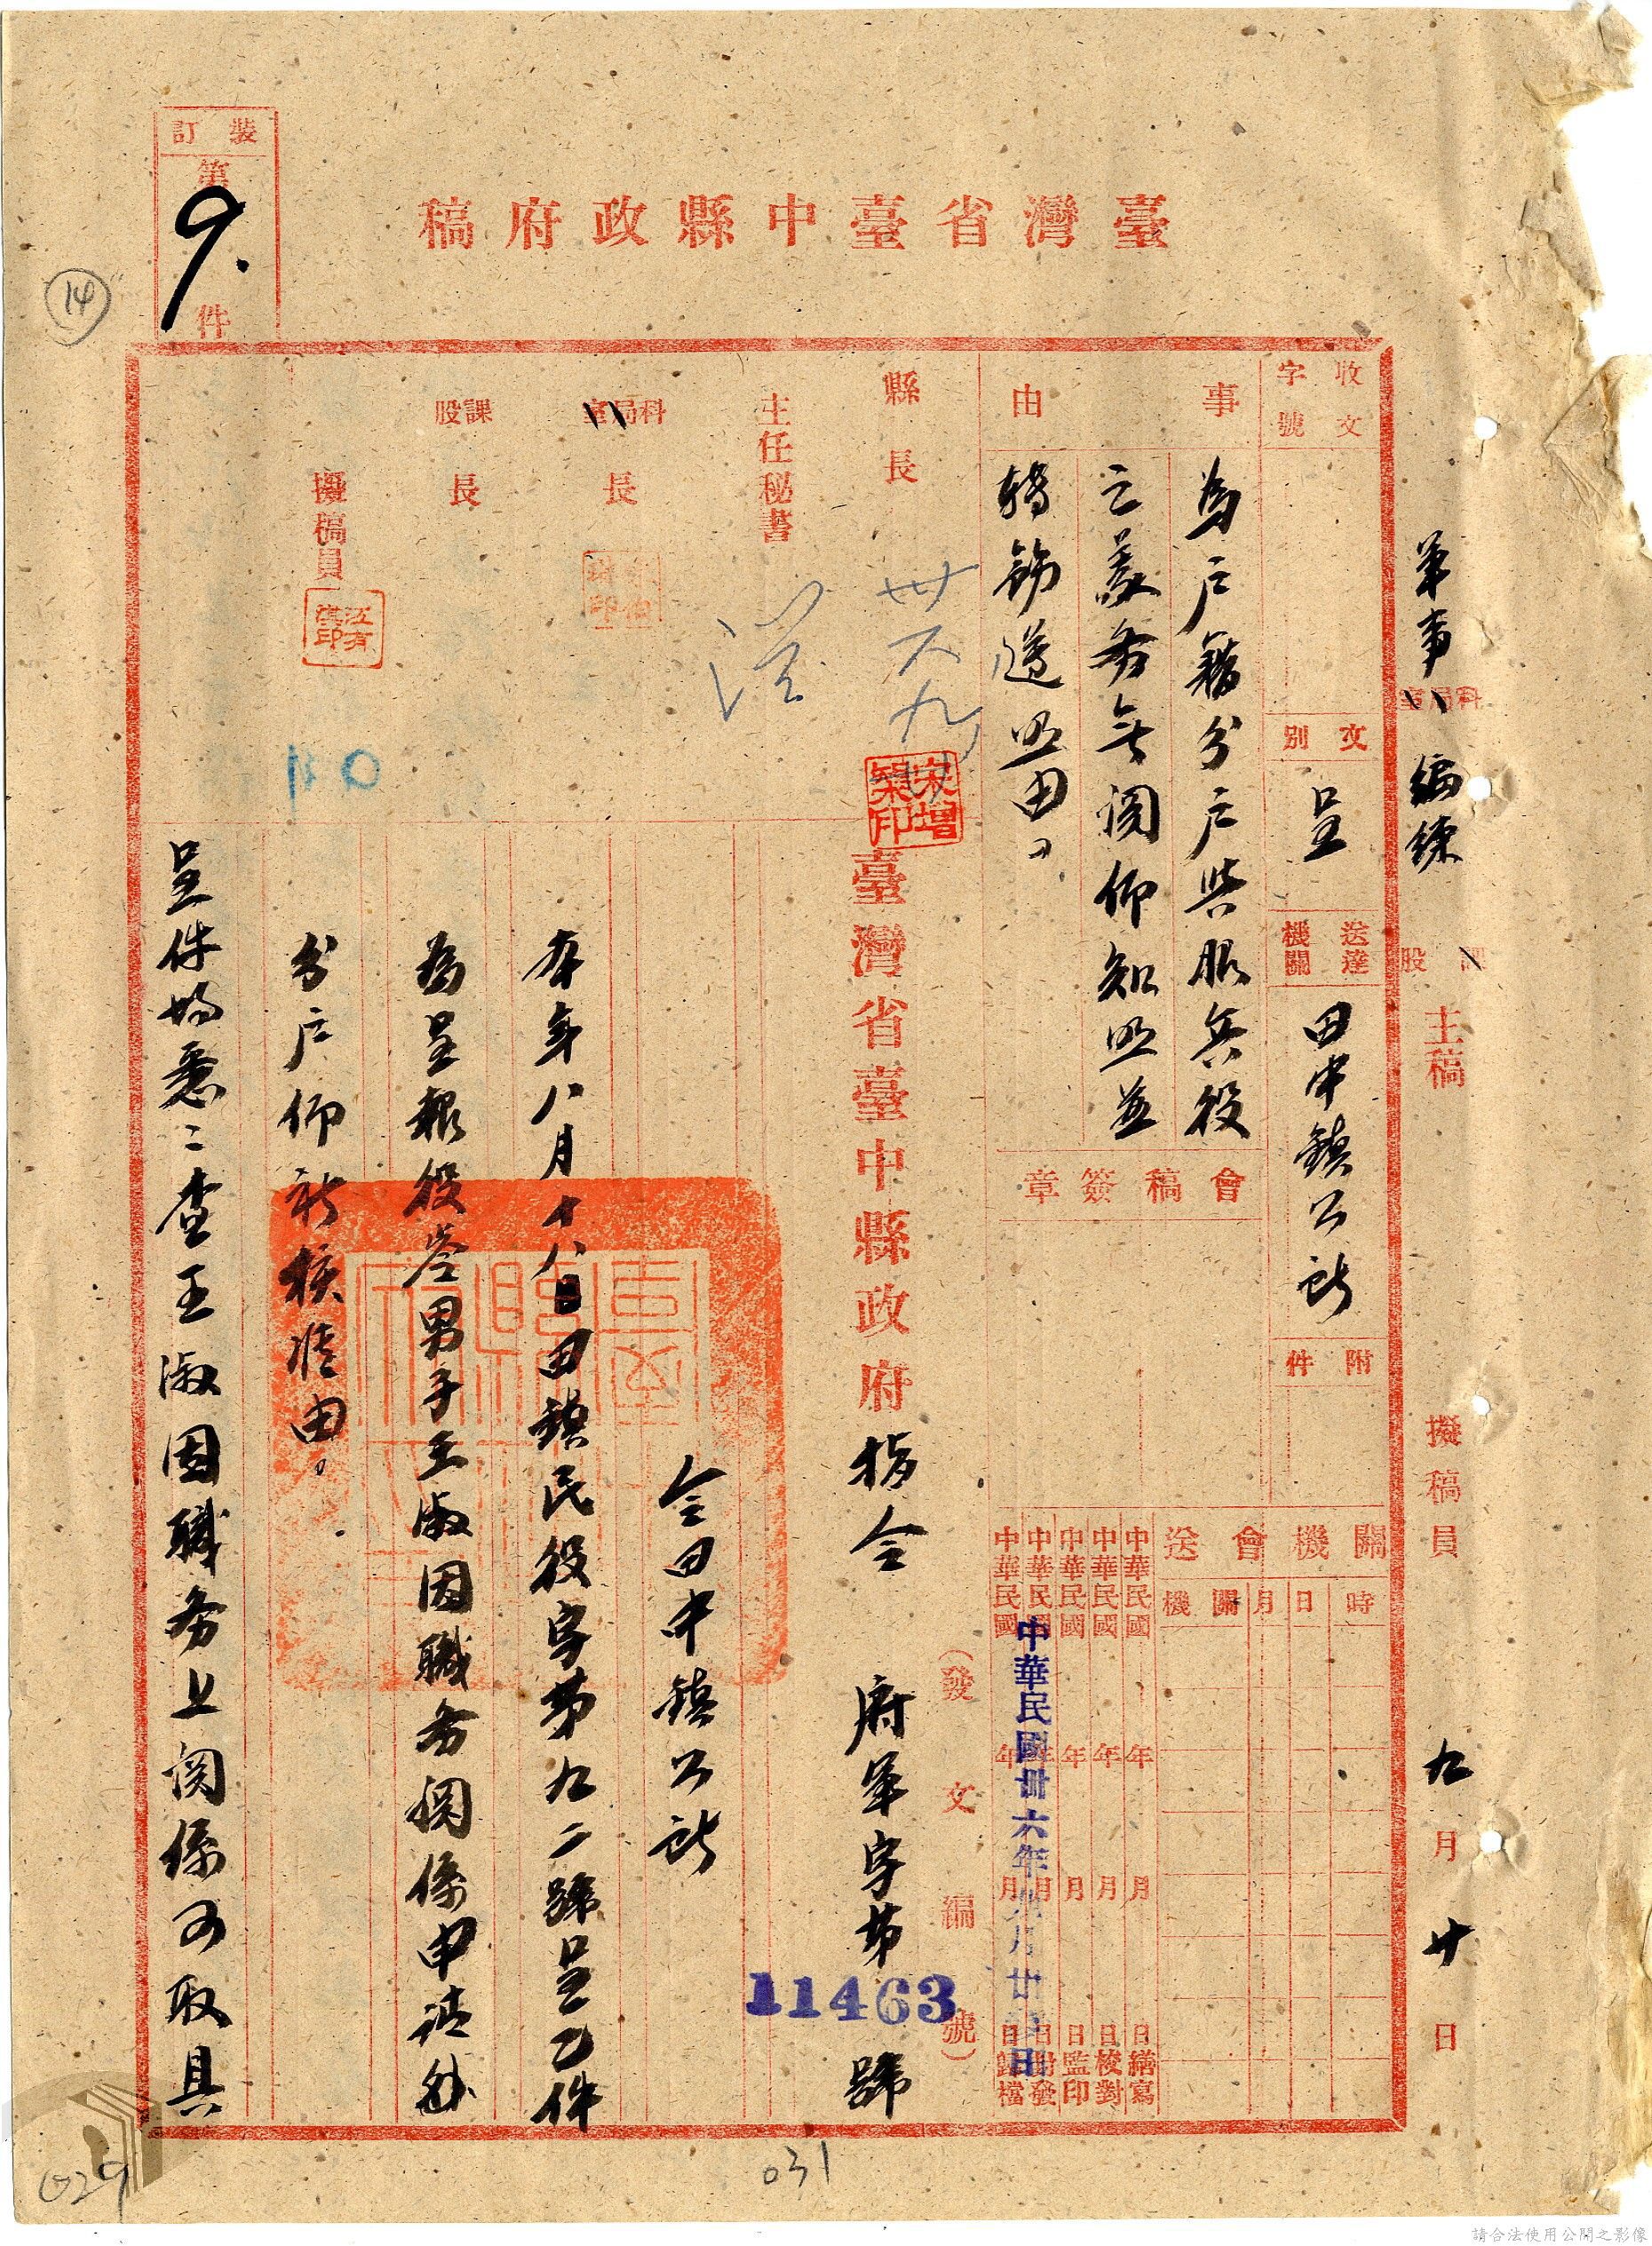 裝訂
第
9.
件
14
臺灣省臺中縣政府稿
軍事科局室 編練課股 主稿 擬稿員 九月廿日
收文字號
文別
呈
送達機關
田中鎮公所
附件
事由
為戶籍分戶與服兵役
之義務無関仰知照並
轉飭遵照由
會稿簽章
關機會送
時
日
月
關機
中華民國 年 月 日繕寫
中華民國 年 月 日校對
中華民國 年 月 日監印
中華民國 年 月 日封發
中華民國 年 月 日歸檔
中華民國卅六年
縣長
宋增榘印
主任秘書
科局室長
課股長
擬稿員
(發文編號)
臺灣省臺中縣政府指令 府軍字第 號
11463
令田中鎮公所
本年八月十八日田鎮民役字第九二號呈乙件
為呈報役齡男子王淑因職務関係申請
分戶仰祈核准由。
呈件均悉二查王淑因職務上関係可取具
031
029
請合法使用公開之影像